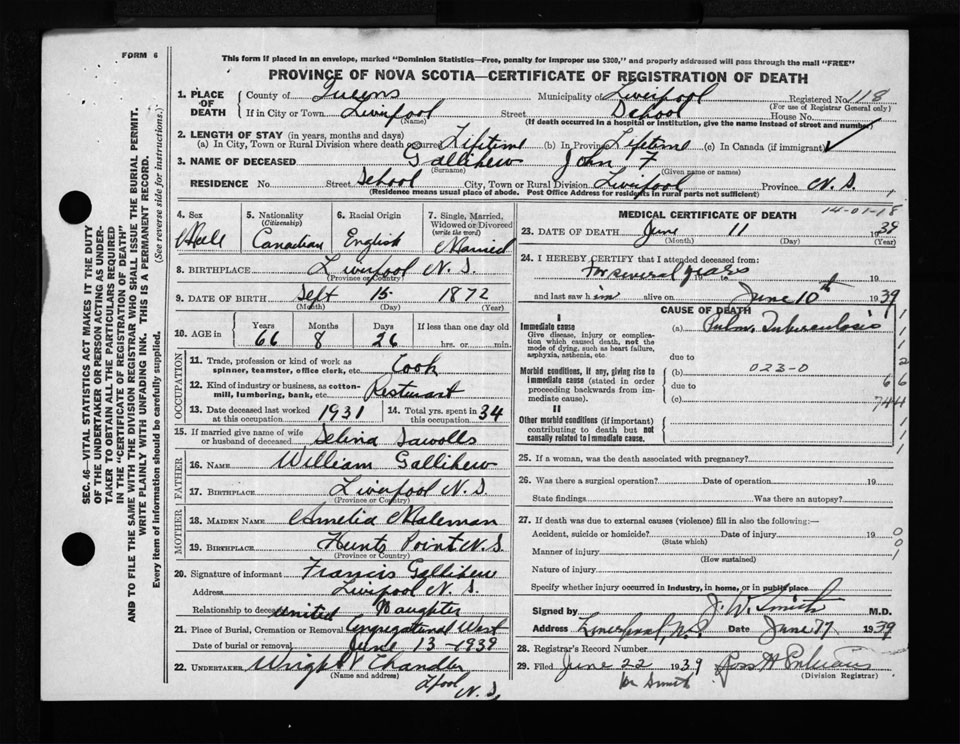 FORM 6
This form if placed in an envelope, marked "Dominion Statistics—Free, penalty for improper use $300," and properly addressed will pass through the mail "FREE"
PROVINCE OF NOVA SCOTIA—CERTIFICATE OF REGISTRATION OF DEATH
1. PLACE OF DEATH County of Queens Municipality of Liverpool Registered No. 118
(For use of Registrar General only)
If in City or Town Liverpool Street School House No.
(Name) (If death occurred in a hospital or institution, give the name instead of street and number)
2. LENGTH OF STAY (in years, months and days)
(a) In City, Town or Rural Division where death occurred Lifetime (b) In Province Lifetime (c) In Canada (if immigrant)
3. NAME OF DECEASED Gallihew John F
(Surname) (Given name or names)
RESIDENCE No. Street School City, Town or Rural Division Liverpool Province N. S.
(Residence means usual place of abode. Post Office Address for residents in rural parts not sufficient)
4. Sex Male
5. Nationality (Citizenship) Canadian
6. Racial Origin English
7. Single, Married, Widowed or Divorced (write the word) Married
8. BIRTHPLACE Liverpool N. S.
(Province or Country)
9. DATE OF BIRTH Sept 15 1872
(Month) (Day) (Year)
10. AGE in Years 66 Months 8 Days 26 If less than one day old hrs. or min.
OCCUPATION
11. Trade, profession or kind of work as spinner, teamster, office clerk, etc. Cook
12. Kind of industry or business, as cotton-mill, lumbering, bank, etc. Resturant
13. Date deceased last worked at this occupation 1931 14. Total yrs. spent in this occupation 34
15. If married give name of wife or husband of deceased Selina
FATHER
16. NAME William Gallihew
17. BIRTHPLACE Liverpool N. S.
(Province or Country)
MOTHER
18. MAIDEN NAME Amelia
19. BIRTHPLACE Hunts Point N. S.
(Province or Country)
20. Signature of informant Francis Gallihew
Address Liverpool N. S.
Relationship to deceased Daughter
21. Place of Burial, Cremation or Removal United Congregational West
Date of burial or removal June 13 1939
22. UNDERTAKER Wright Chandler
(Name and address)
Lpool N. S.
MEDICAL CERTIFICATE OF DEATH
14-01-18
23. DATE OF DEATH June 11 1939
(Month) (Day) (Year)
24. I HEREBY CERTIFY that I attended deceased from:
for several years 19
and last saw him alive on June 10th 1939
CAUSE OF DEATH
I
Immediate cause
Give disease, injury or complication which caused death, not the mode of dying, such as heart failure, asphyxia, asthenia, etc.
(a) Pulm. Tuberculosis
due to
Morbid conditions, if any, giving rise to immediate cause (stated in order proceeding backwards from immediate cause).
(b) 023-0
due to
(c)
II
Other morbid conditions (if important) contributing to death but not causally related to immediate cause.
25. If a woman, was the death associated with pregnancy?
26. Was there a surgical operation? Date of operation 19
State findings Was there an autopsy?
27. If death was due to external causes (violence) fill in also the following:—
Accident, suicide or homicide? Date of injury 19
(State which)
Manner of injury
(How sustained)
Nature of injury
Specify whether injury occurred in industry, in home, or in public place
Signed by J. W. Smith M.D.
Address Liverpool, N.S. Date June 1939
28. Registrar's Record Number
29. Filed June 22 1939
(Division Registrar)
Mr Smith
SEC. 46—VITAL STATISTICS ACT MAKES IT THE DUTY
OF THE UNDERTAKER OR PERSON ACTING AS UNDER-
TAKER TO OBTAIN ALL THE PARTICULARS REQUIRED
IN THE "CERTIFICATE OF REGISTRATION OF DEATH"
AND TO FILE THE SAME WITH THE DIVISION REGISTRAR WHO SHALL ISSUE THE BURIAL PERMIT.
WRITE PLAINLY WITH UNFADING INK. THIS IS A PERMANENT RECORD.
Every item of Information should be carefully supplied. (See reverse side for instructions.)